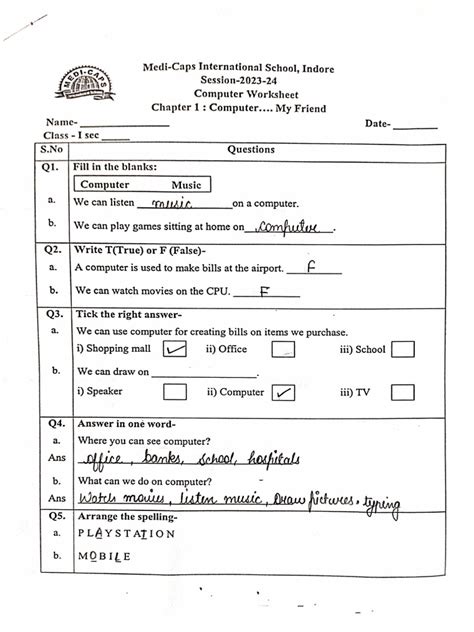 MEDI-CAPS
Medi-Caps International School, Indore
Session-2023-24
Computer Worksheet
Chapter 1 : Computer.... My Friend
Name-
Date-
Class - I sec
S.No Questions
Q1. Fill in the blanks:
Computer Music
a. We can listen music on a computer.
b. We can play games sitting at home on computer.
Q2. Write T(True) or F (False)-
a. A computer is used to make bills at the airport. F
b. We can watch movies on the CPU. F
Q3. Tick the right answer-
a. We can use computer for creating bills on items we purchase.
i) Shopping mall ✓ ii) Office iii) School
b. We can draw on
i) Speaker ii) Computer ✓ iii) TV
Q4. Answer in one word-
a. Where you can see computer?
Ans office, banks, school, hospitals
b. What can we do on computer?
Ans Watch movies, listen music, Draw pictures, typing
Q5. Arrange the spelling-
a. PLAYSTATION
b. MOBILE